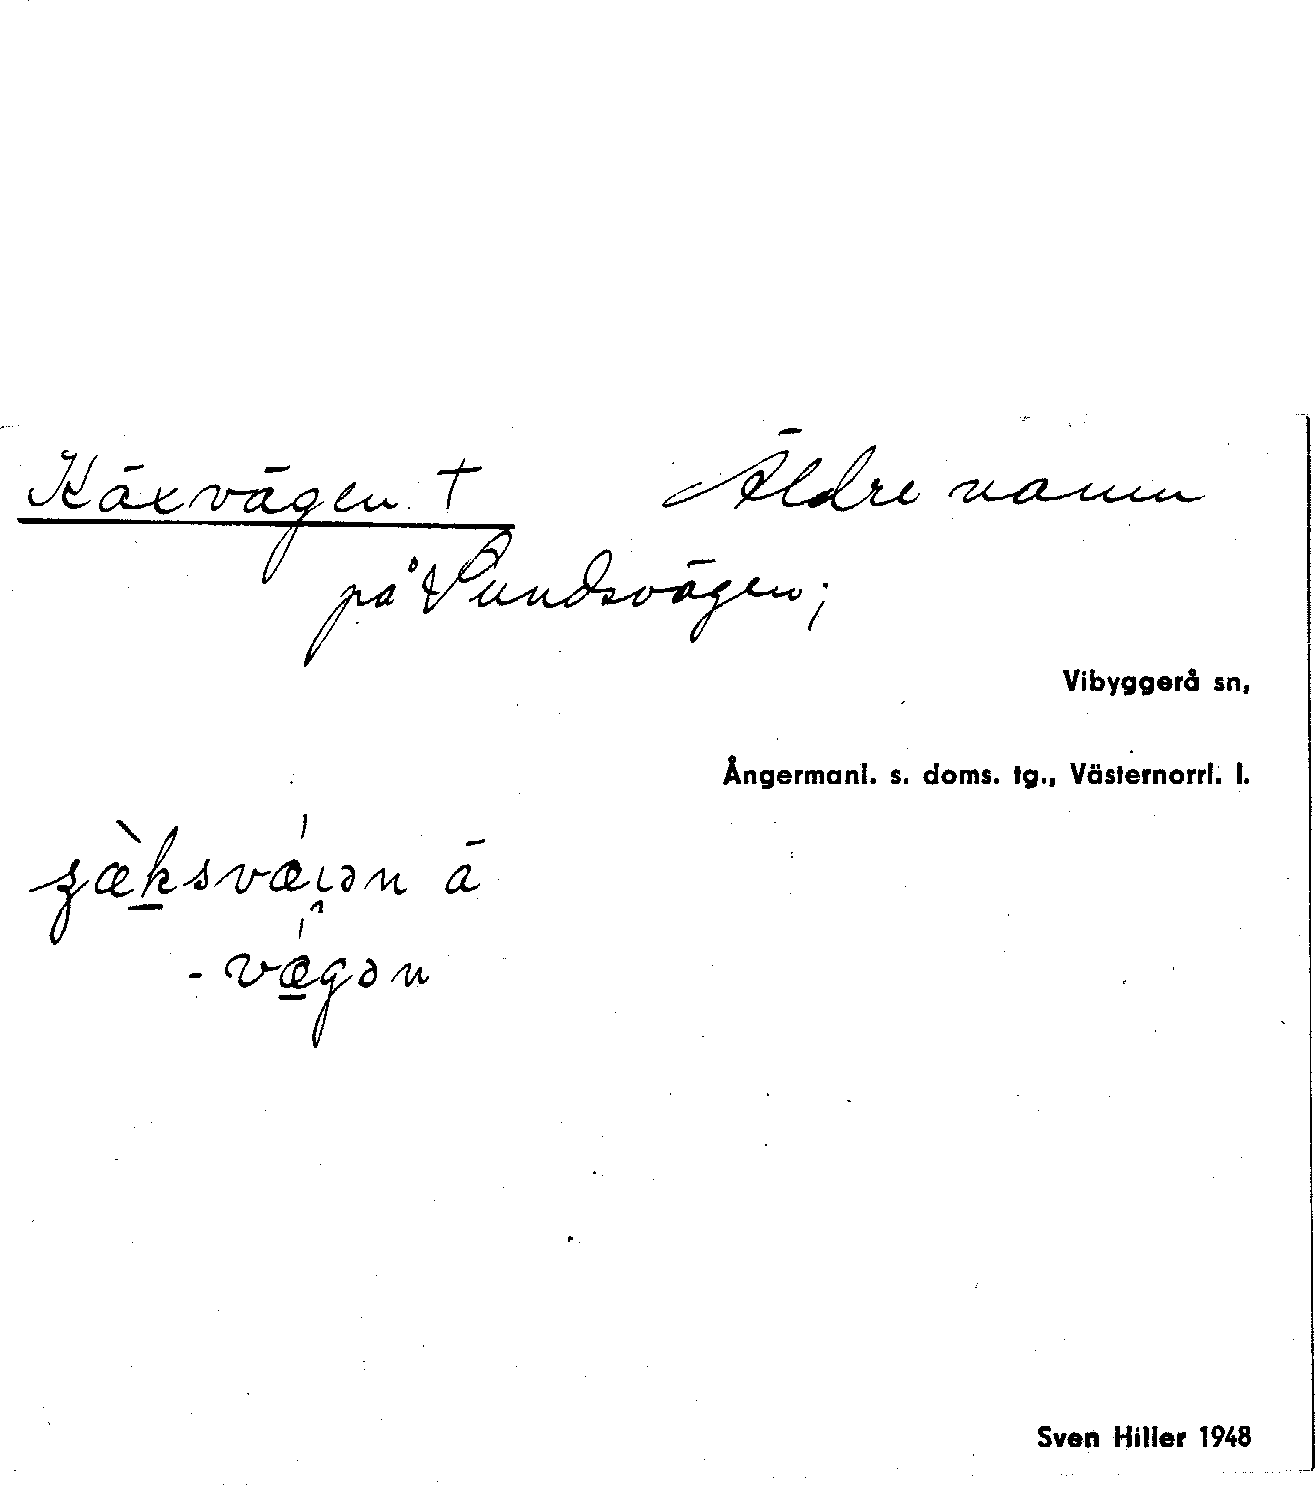 Käxvägen † Äldre namn
på Sundsvägen;
Vibyggerå sn,
Ångermanl. s. doms. tg., Västernorrl. l.
ä
Sven Hiller 1948